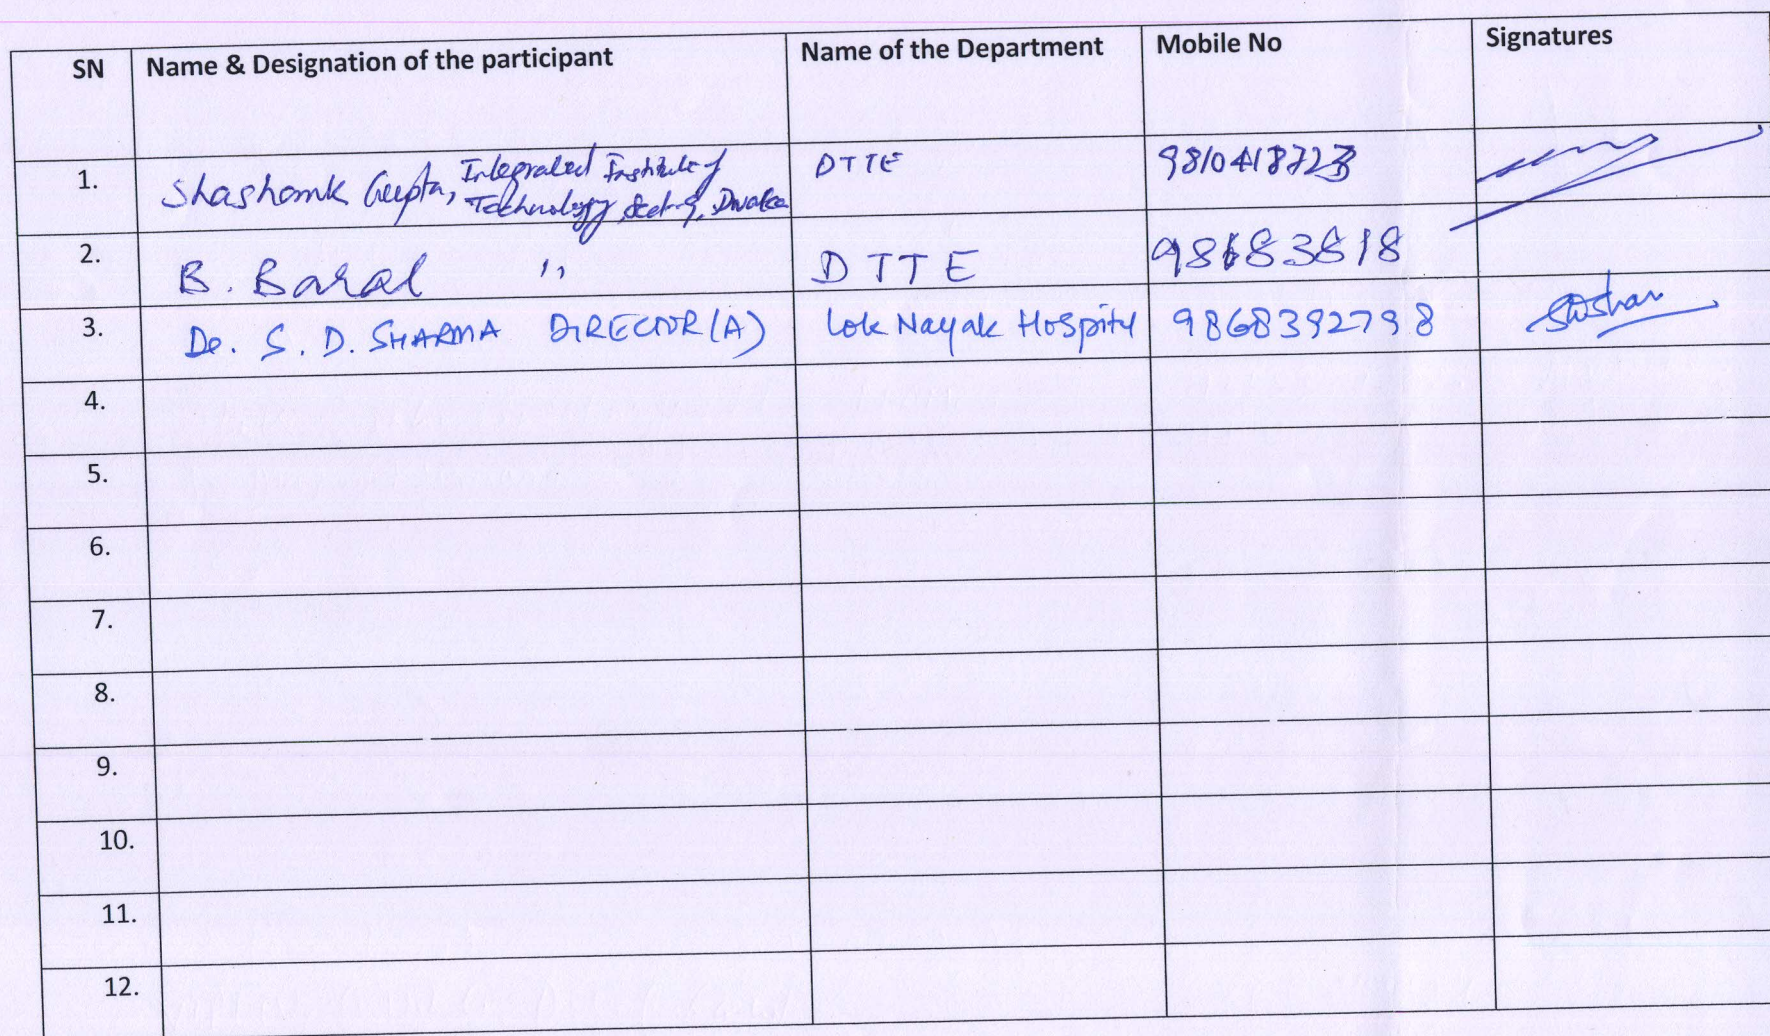 SN Name & Designation of the participant Name of the Department Mobile No Signatures
1. Shashank Gupta, Integrated Institute of DTTE 9810418723
Technology Sector-9, Dwarka
2. B. Baral " DTTE 98683818
3. Dr. S. D. SHARMA DIRECTOR (A) Lok Nayak Hospital 9868392798
4.
5.
6.
7.
8.
9.
10.
11.
12.